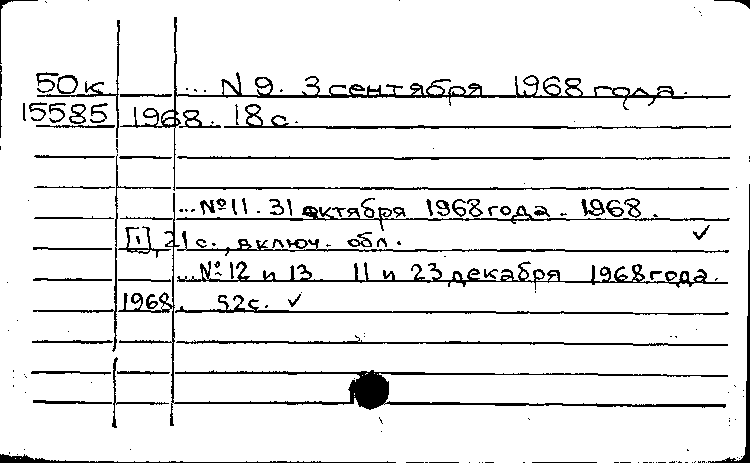 50к ... N 9. 3 сентября 1968 года.
15585 1968. 18 с.
... № 11. 31 октября 1968 года. 1968.
[1], 21 с., включ. обл. ✓
... № 12 и 13. 11 и 23 декабря 1968 года.
1968. 52с. ✓